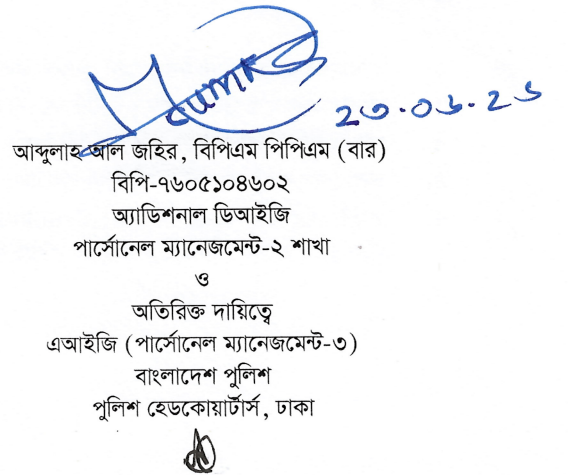 ২৩.০৬.২৬
আব্দুলাহ আল জহির, বিপিএম পিপিএম (বার)
বিপি-৭৬০৫১০৪৬০২
অ্যাডিশনাল ডিআইজি
পার্সোনেল ম্যানেজমেন্ট-২ শাখা
ও
অতিরিক্ত দায়িত্বে
এআইজি (পার্সোনেল ম্যানেজমেন্ট-৩)
বাংলাদেশ পুলিশ
পুলিশ হেডকোয়ার্টার্স, ঢাকা